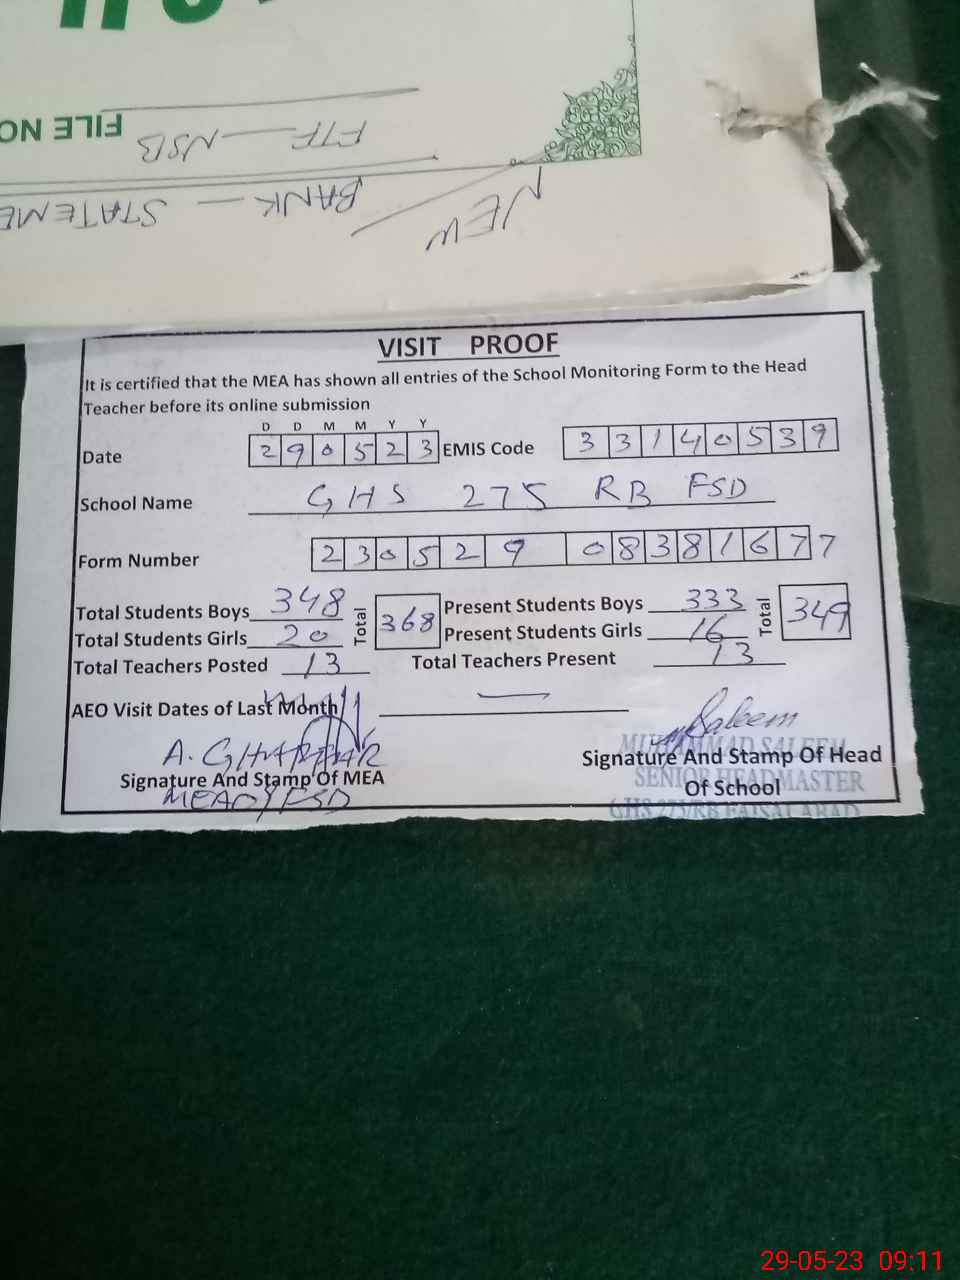 FILE NO
FTF - NSB
BANK - STATEME
NEW
VISIT PROOF
It is certified that the MEA has shown all entries of the School Monitoring Form to the Head
Teacher before its online submission
D D M M Y Y
Date 290523 EMIS Code 33140539
School Name GHS 275 RB FSD
Form Number 230529 08381677
Total Students Boys 348 Total 368 Present Students Boys 333 Total 349
Total Students Girls 20 Present Students Girls 16
Total Teachers Posted 13 Total Teachers Present 13
AEO Visit Dates of Last Month —
A. GHAFFAR Saleem
MUHAMMAD SALEEM
Signature And Stamp Of MEA Signature And Stamp Of Head
SENIOR HEADMASTER
Of School
FSD
GHS 275/RB FAISALABAD
29-05-23 09:11